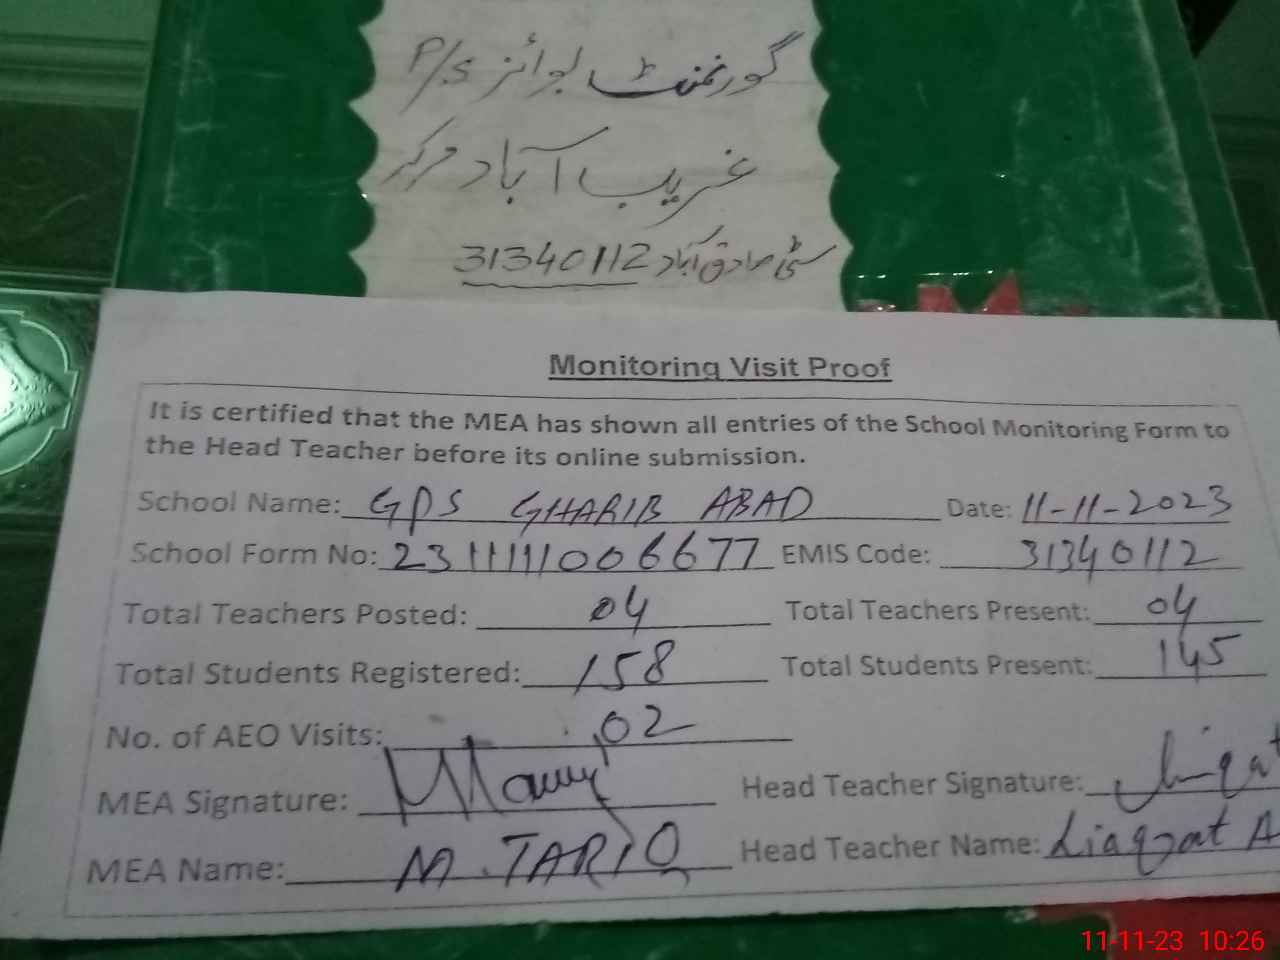 گورنمنٹ بوائز P/S
غریب آباد مرکز
سٹی صادق آباد 31340112
Monitoring Visit Proof
It is certified that the MEA has shown all entries of the School Monitoring Form to
the Head Teacher before its online submission.
School Name: GPS GHARIB ABAD Date: 11-11-2023
School Form No: 23111111006677 EMIS Code: 31340112
Total Teachers Posted: 04 Total Teachers Present: 04
Total Students Registered: 158 Total Students Present: 145
No. of AEO Visits: 02
MEA Signature: Head Teacher Signature: Liaqat
MEA Name: M. TARIQ Head Teacher Name: Liaqat A
11-11-23 10:26